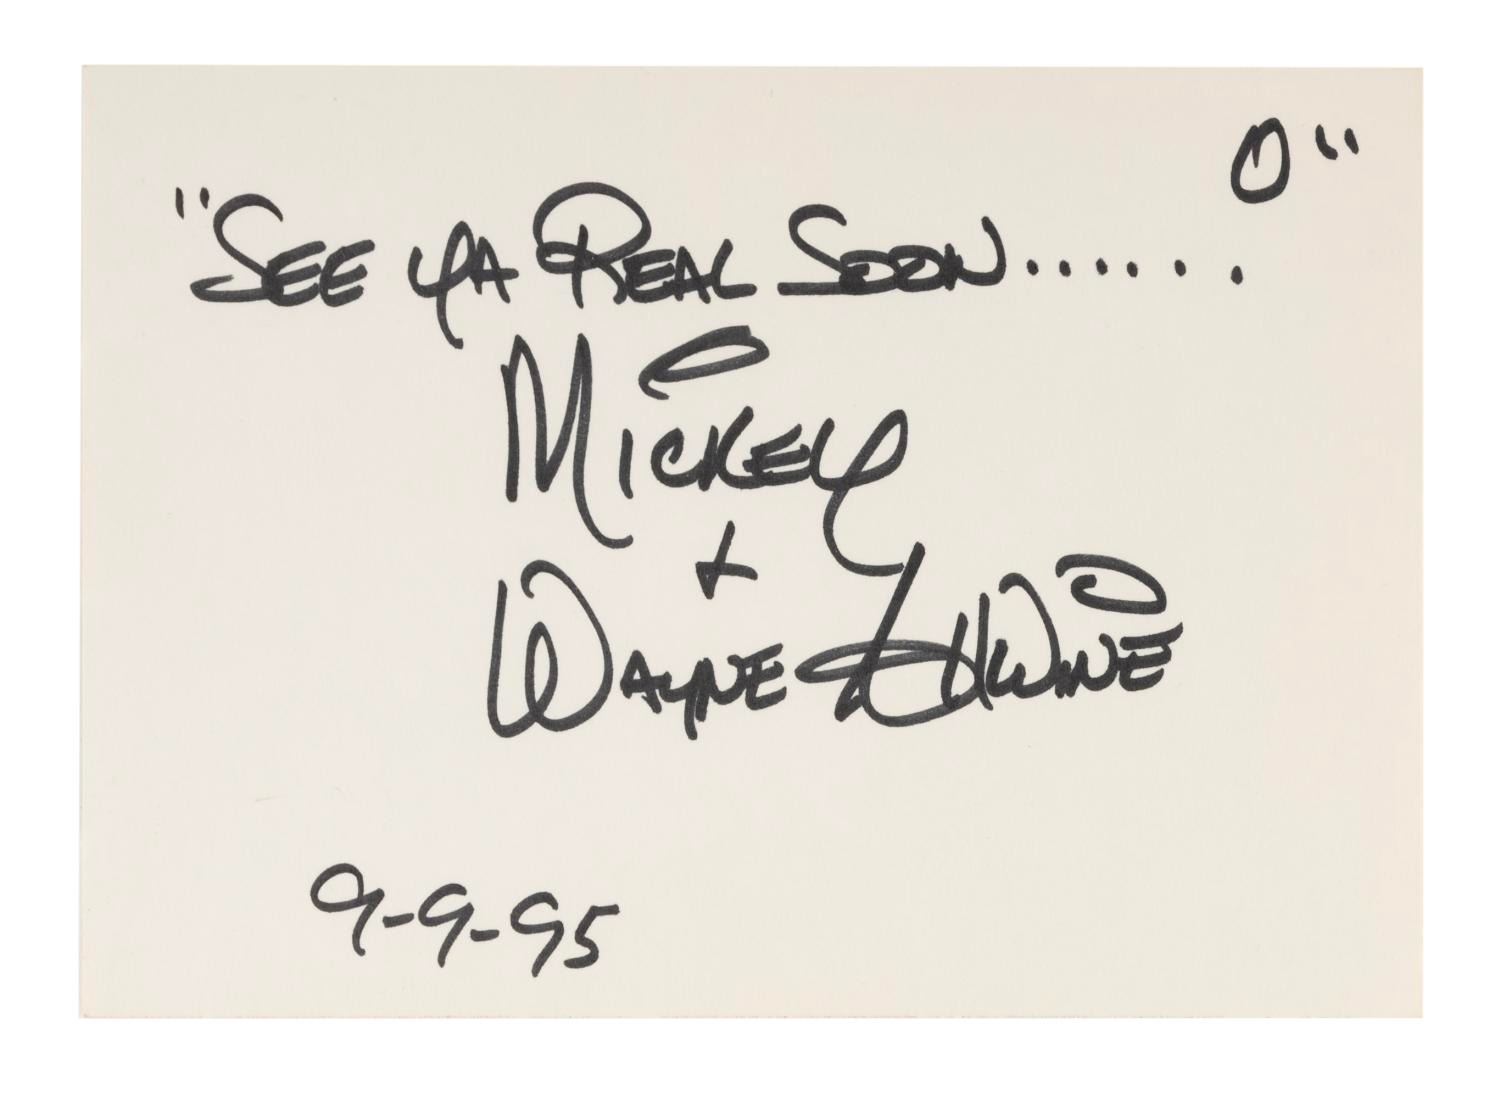 "See ya Real Soon....... 0"
Mickey
+
Wayne Allwine
9-9-95